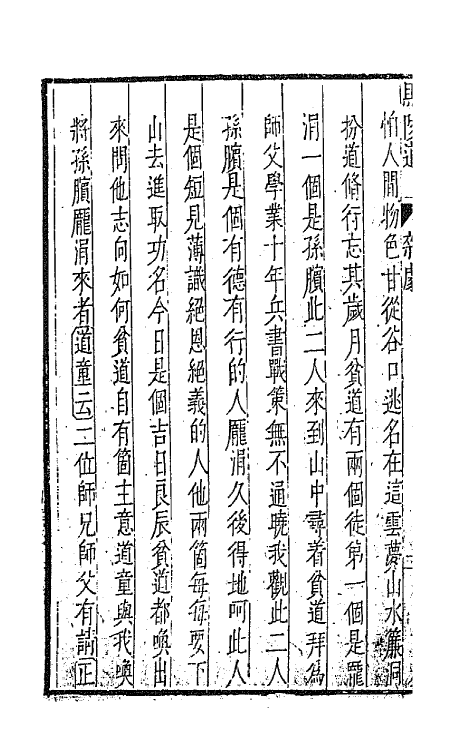 馬陵道 雜劇
怕人間物色甘從谷口逃名在這雲夢山水簾洞
扮道脩行忘其歲月貧道有兩個徒弟一個是龐
涓一個是孫臏此二人來到山中尋着貧道拜為
師父學業十年兵書戰策無不通曉我觀此二人
孫臏是個有德有行的人龐涓久後得地呵此人
是個短見薄識絕恩絕義的人他兩箇每每要下
山去進取功名今日是個吉日良辰貧道都喚出
來問他志向如何貧道自有箇主意道童與我喚
將孫臏龐涓來者道童云二位師兄師父有請正